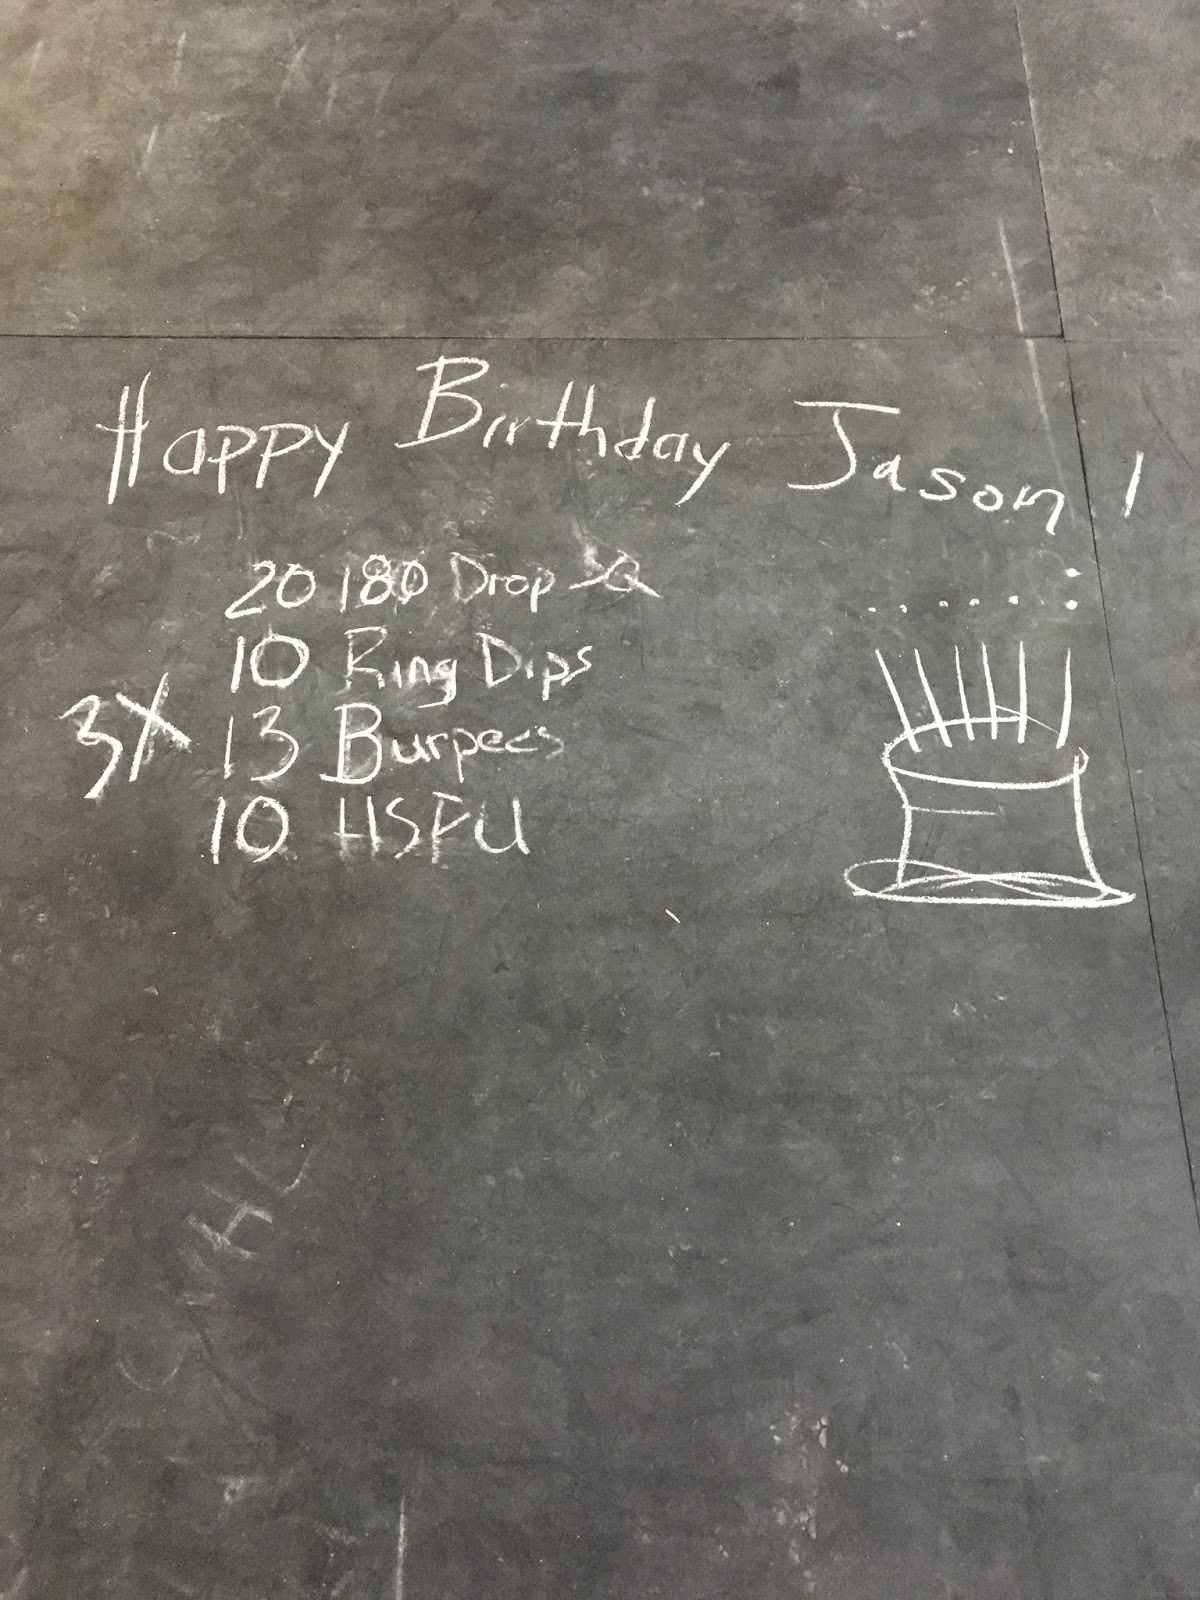 Happy Birthday Jason !
20 180 Drop SQ
10 Ring Dips
3X 13 Burpees
10 HSPU